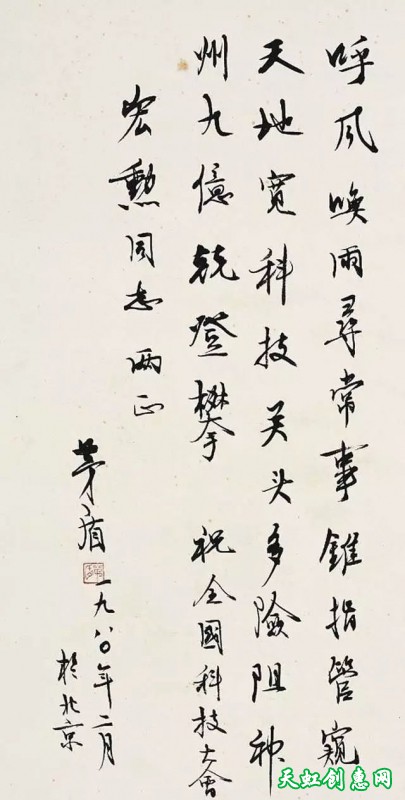 呼风唤雨寻常事锥指管窥
天地宽科技关头多險阻神
州九億兢登攀 祝全國科技大會
宏勳同志 两正
茅盾
一九八〇年二月
於北京
天虹创惠网